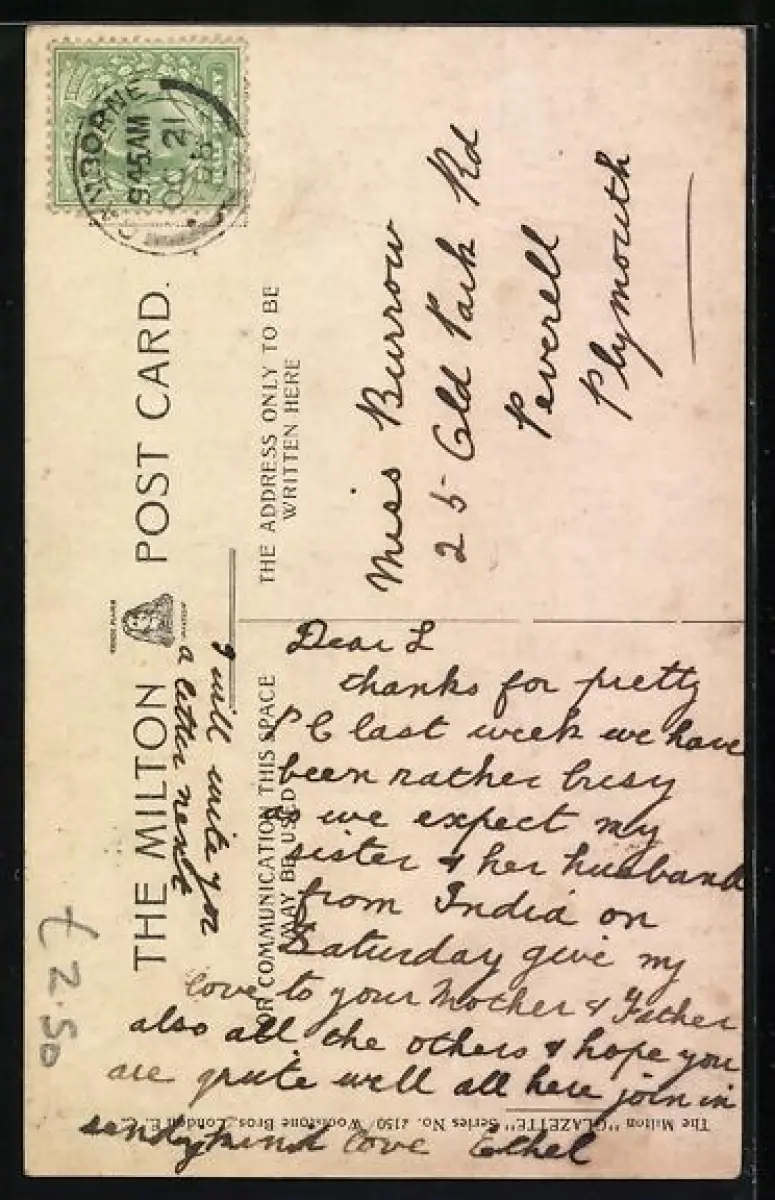 THE MILTON POST CARD.
FOR COMMUNICATION THIS SPACE
MAY BE USED
THE ADDRESS ONLY TO BE
WRITTEN HERE
9.45AM
OC 21
Miss Burrow
25 Old Park Rd
Peverell
Plymouth
Dear L
thanks for pretty
PC last week we have
been rather busy
as we expect my
sister & her husband
from India on
Saturday give my
love to your Mother & Father
also all the others & hope you
are quite well all here join in
sendg kind love Ethel
I will write you
a letter next
£2.50
The Milton "GLAZETTE" Series No. Woolstone Bros., London E.C.